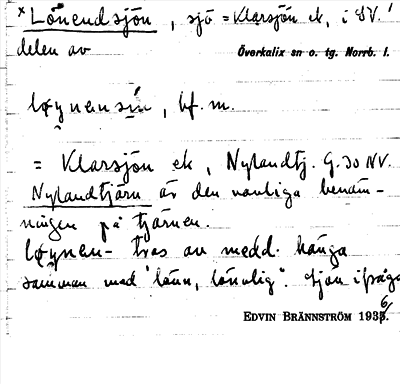 × Lönendsjön, sjö = Klarsjön ek, i SV.
delen av Överkalix sn o. tg. Norrb. l.
løynensin, bf. m.
= Klarsjön ek, Nylandtj. G. 30 NV.
Nylandtjärn är den vanliga benäm-
ningen på tjärnen.
løynen- tros av medd. hänga
samman med "lönn, lönnlig". Sjön ifråga
EDVIN BRÄNNSTRÖM 1936.